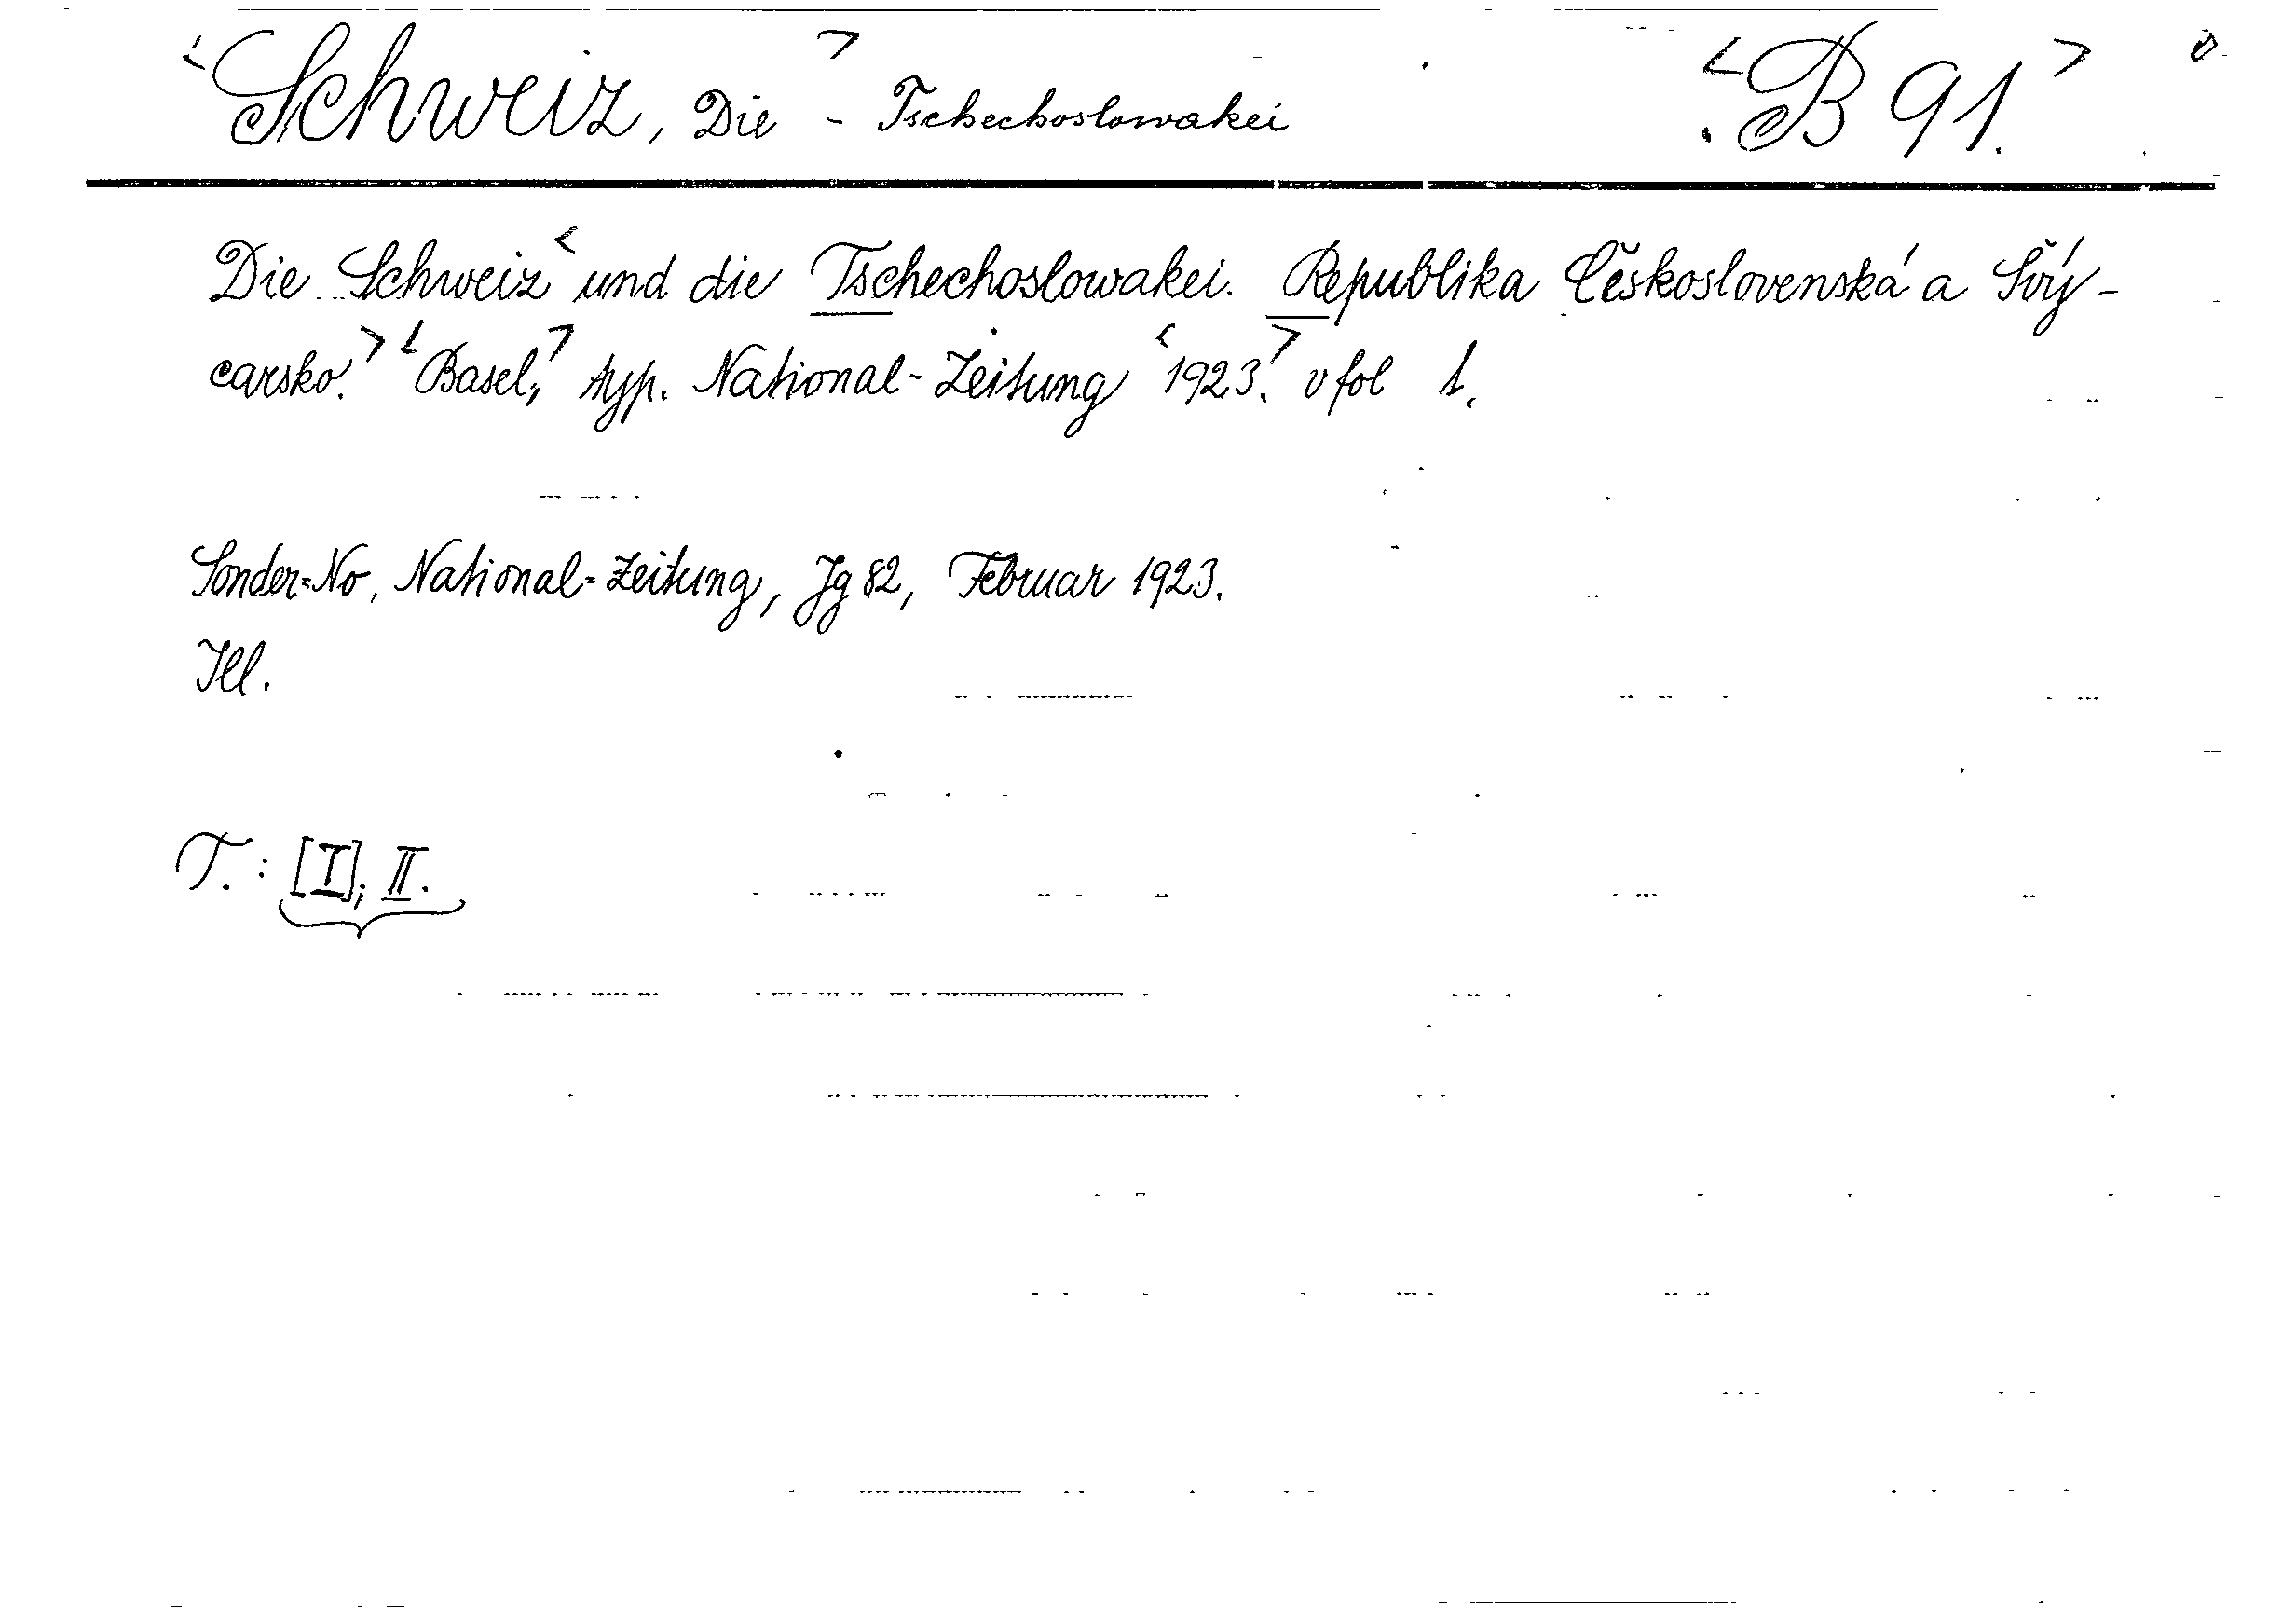 <Schweiz, Die> - Tschechoslowakei <B 91.>
Die Schweiz <und die Tschechoslowakei. Republika Československá a Švý-
carsko.> <Basel,> typ. National-Zeitung <1923.> v fol 1.
Sonder=No, National=Zeitung, Jg 82, Februar 1923.
Ill.
T.: [I]; II.